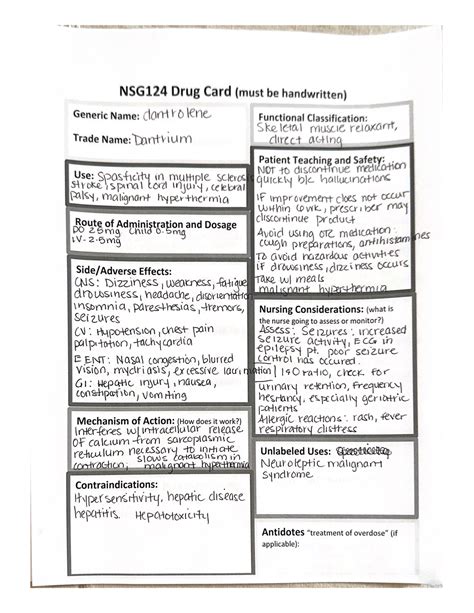 NSG124 Drug Card (must be handwritten)
Generic Name: dantrolene
Trade Name: Dantrium
Use: Spasticity in multiple sclerosis
stroke, spinal cord injury, celebral
palsy, malignant hyperthermia
Route of Administration and Dosage
PO 25mg Child 0.5mg
IV-2.5mg
Side/Adverse Effects:
CNS: Dizziness, weakness, fatigue
drowsiness, headache, disorientation
insomnia, paresthesias, tremors,
seizures
CV: Hypotension, chest pain
palpitation, tachycardia
EENT: Nasal congestion, blurred
vision, mydriasis, excessive lacrimation
GI: Hepatic injury, nausea,
constipation, vomiting
Mechanism of Action: (How does it work?)
Interferes w/intracellular release
of calcium from sarcoplasmic
reticulum necessary to initiate
slows catabolism in
contraction, malignant hyperthermia
Contraindications:
Hypersensitivity, hepatic disease
hepatitis. Hepatotoxicity
Functional Classification:
Skeletal muscle relaxant,
direct acting
Patient Teaching and Safety:
NOT to discontinue medication
quickly b/c hallucinations
IF improvement does not occur
within 6wk, prescriber may
discontinue product
Avoid using OTC medication:
cough preparations, antihistamines
To avoid hazardous activities
if drowsiness, dizziness occurs
Take w/ meals
malignant hyperthermia
Nursing Considerations: (what is
the nurse going to assess or monitor?)
Assess: Seizures: increased
seizure activity, ECG in
epilepsy pt. poor seizure
control has occured.
I&O ratio, check for
urinary retention, frequency
hestancy, especially geriatric
patients
Allergic reactions: rash, fever
respiratory distress
Unlabeled Uses:
Neuroleptic malignant
syndrome
Antidotes "treatment of overdose" (if
applicable):